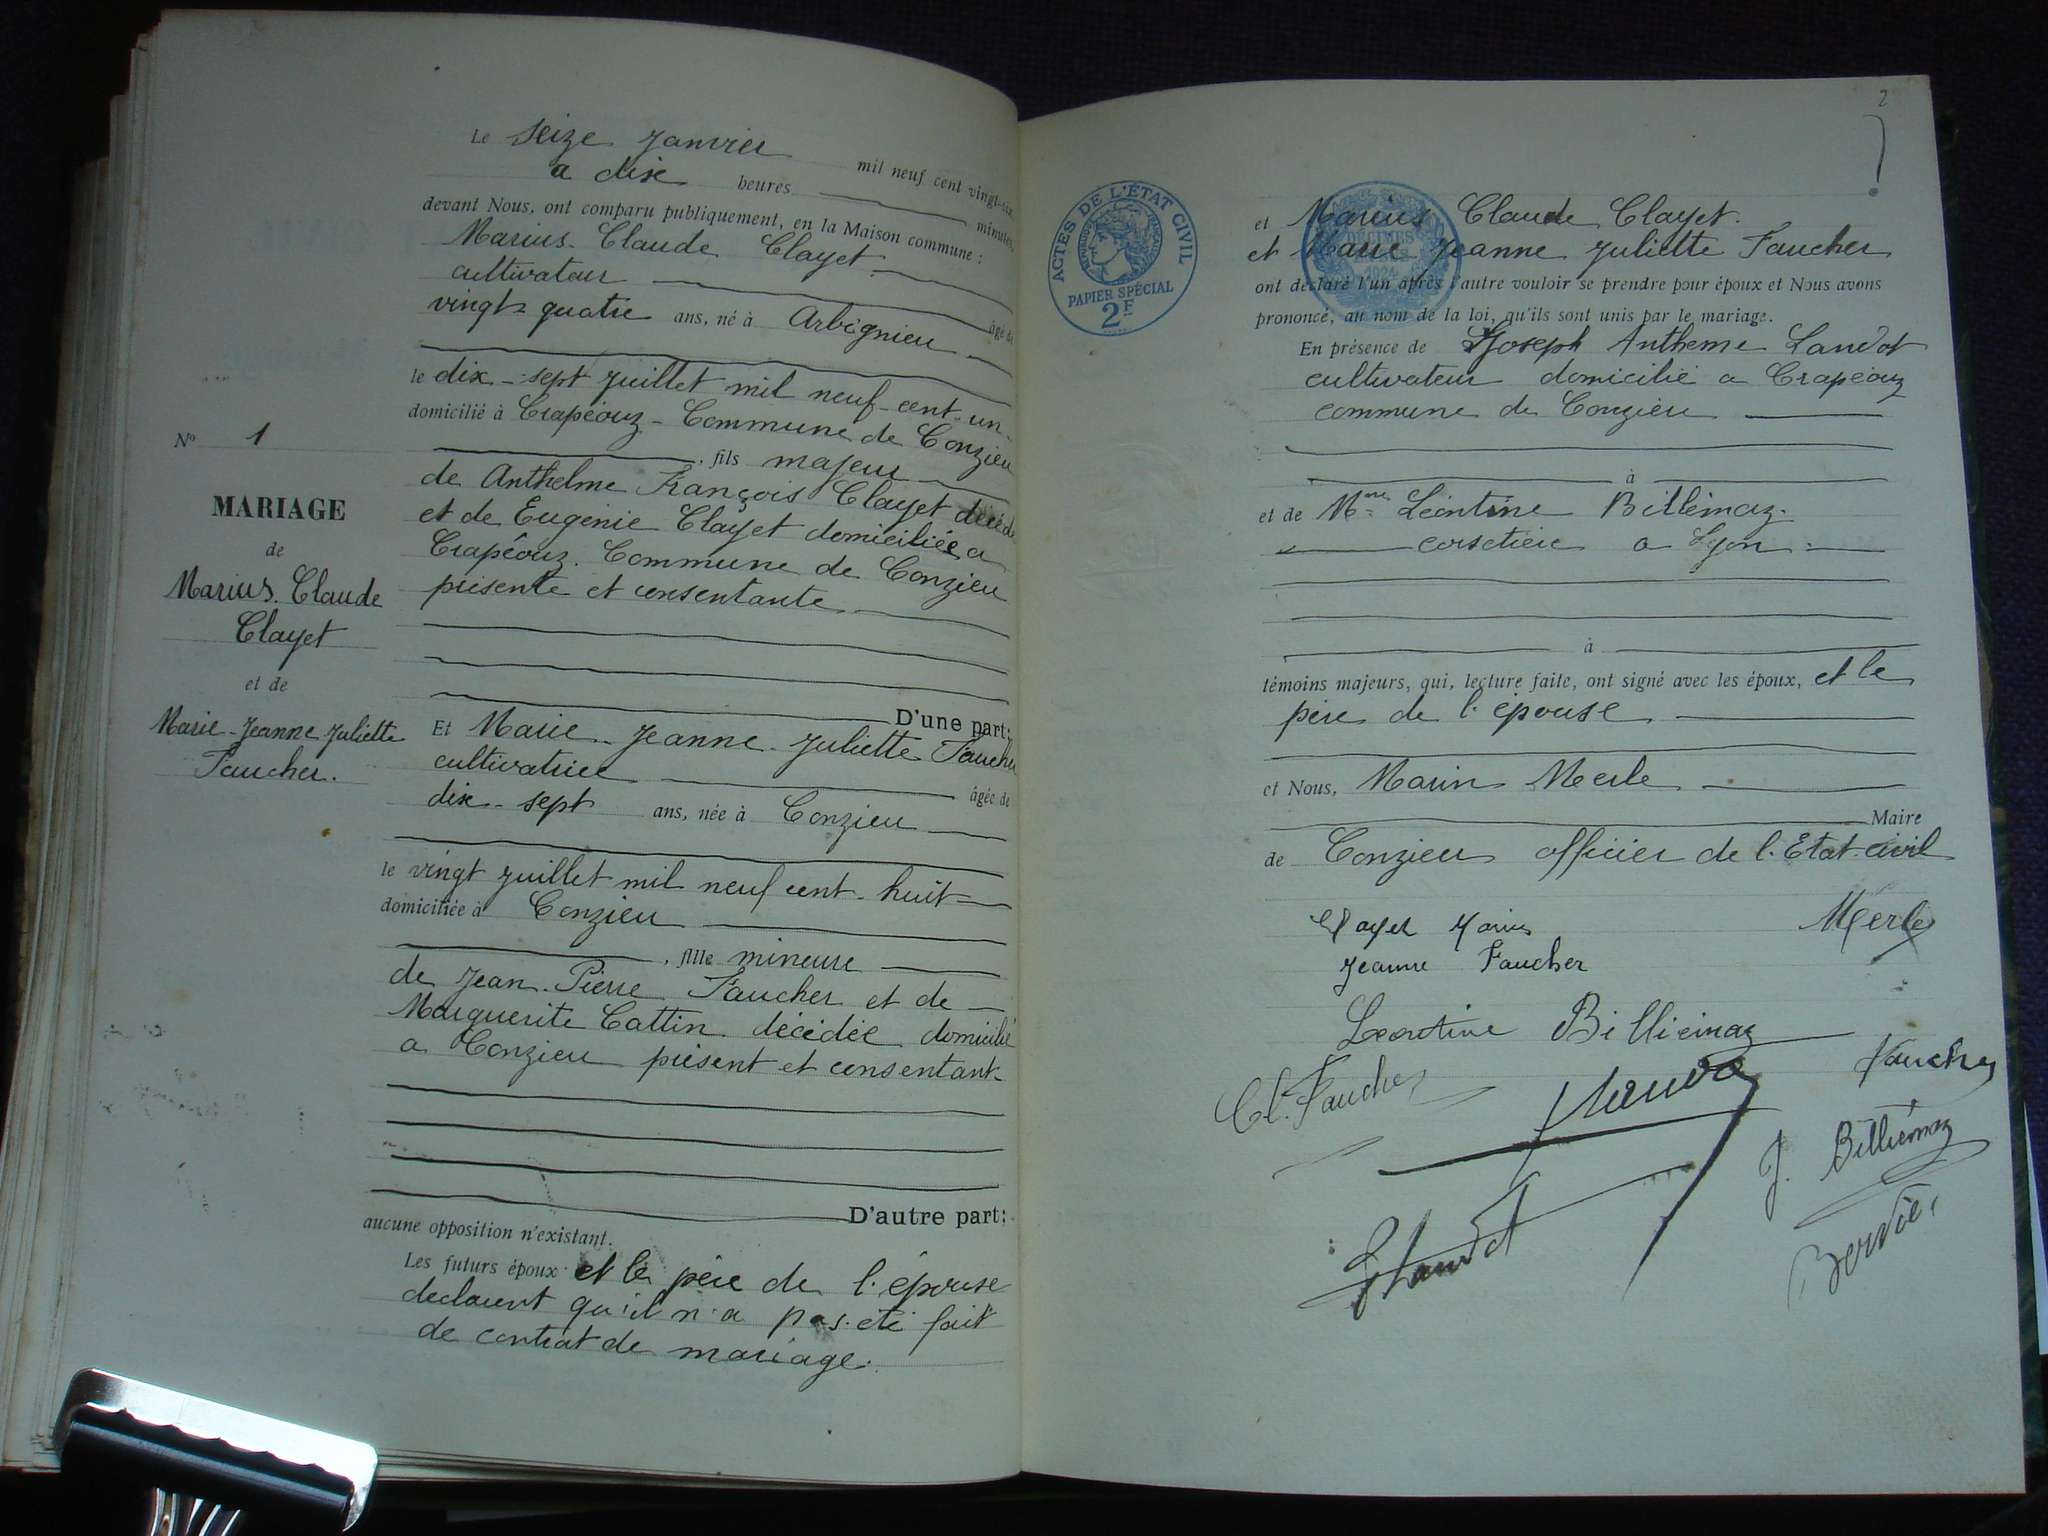 Le seize Janvier mil neuf cent vingt-six,
a dix heures minutes,
devant Nous, ont comparu publiquement, en la Maison commune :
Marius Claude Clayet
cultivateur âgé de
vingt-quatre ans, né à Arbignieu
le dix-sept juillet mil neuf-cent-un
domicilié à Crapéouz - Commune de Conzieu
, fils majeur
de Anthelme François Clayet décédé
et de Eugénie Clayet domiciliée a
Crapéouz. Commune de Conzieu
présente et consentante
D'une part;
Nº 1
MARIAGE
de
Marius Claude
Clayet
et de
Marie-Jeanne Juliette
Faucher.
Et Marie-Jeanne-Juliette Faucher
cultivatrice âgée de
dix-sept ans, née à Conzieu
le vingt juillet mil neuf cent-huit
domiciliée à Conzieu
, fille mineure
de Jean-Pierre Faucher et de
Marguerite Cattin décédée domicilié
a Conzieu présent et consentant
D'autre part;
aucune opposition n'existant.
Les futurs époux et le père de l'épouse
declarent qu'il n'a pas été fait
de contrat de mariage.
2
ACTES DE L'ÉTAT CIVIL
PAPIER SPÉCIAL
2F
DÉCIMES
1924
et Marius Claude Clayet.
et Marie Jeanne Juliette Faucher
ont déclaré l'un après l'autre vouloir se prendre pour époux et Nous avons
prononcé, au nom de la loi, qu'ils sont unis par le mariage.
En présence de Joseph Antheme Landot
cultivateur domicilié a Crapéouz
commune de Conzieu
à
et de Mme Léontine Billémaz.
corsetière a Lyon
à
témoins majeurs, qui, lecture faite, ont signé avec les époux, et le
père de l'épouse
et Nous, Marin Merle
Maire
de Conzieu officier de l'Etat civil
Clayet Marius Merle
Jeanne Faucher
Leontine Billiémaz
Cl. Faucher Faucher
J. Billiémaz
Landot